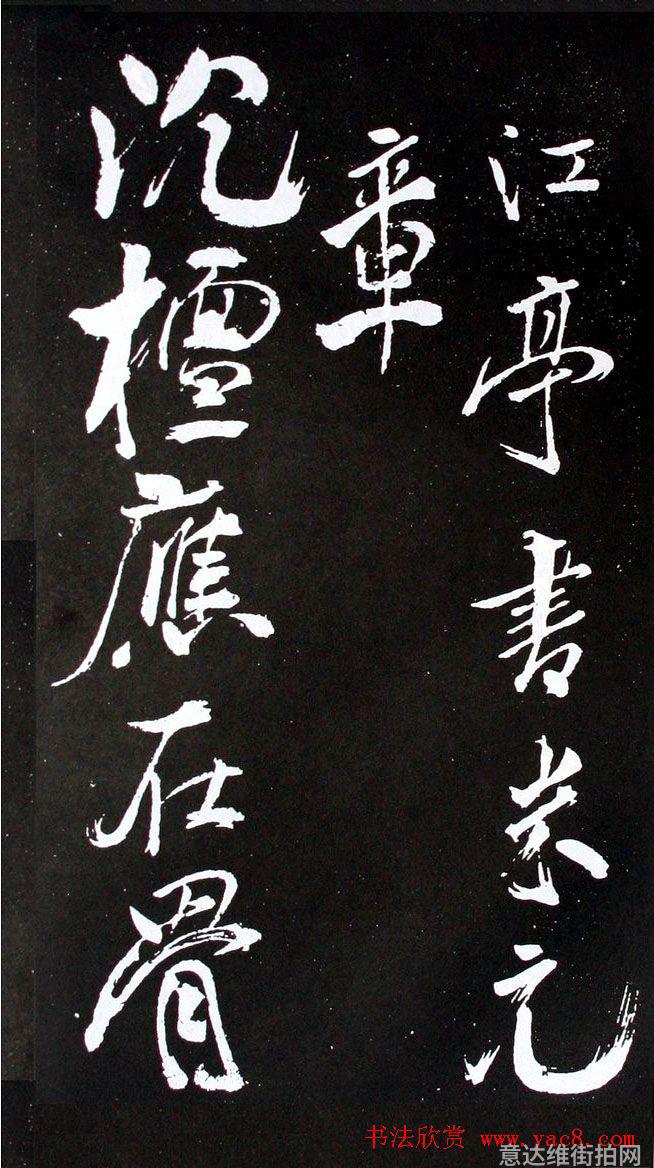 江亭書米元
章
沉檀應在骨
书法欣赏 www.yac8.com
意达维街拍网